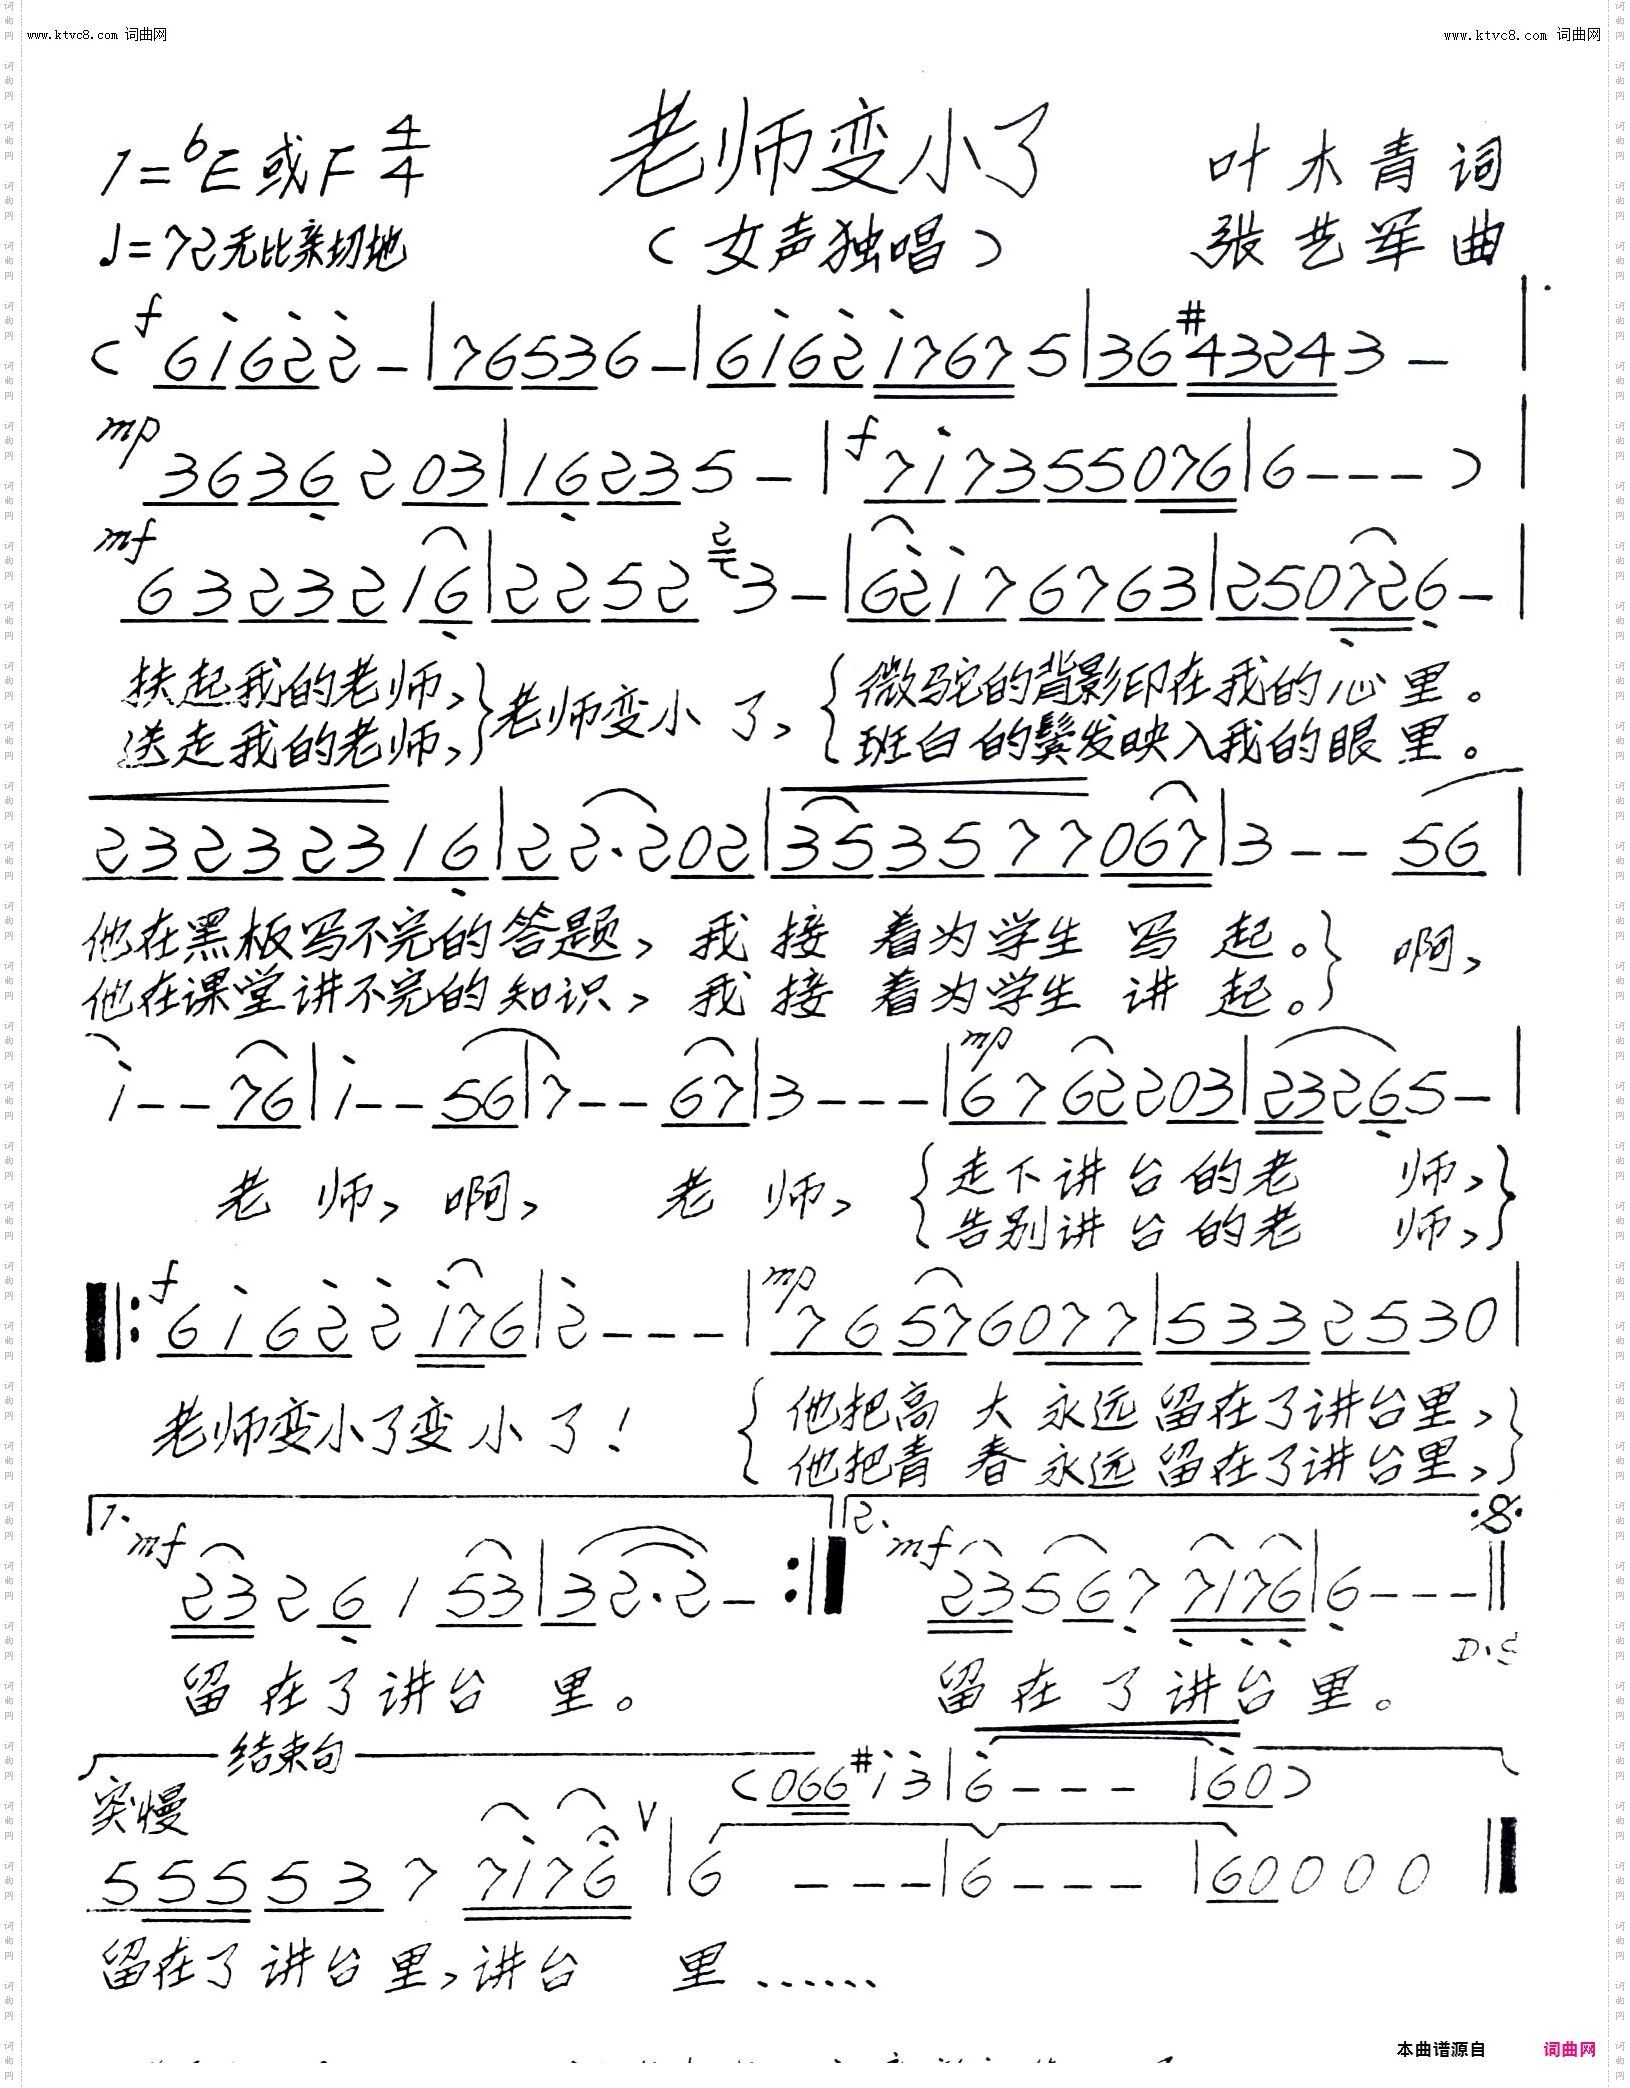 www.ktvc8.com 词曲网 www.ktvc8.com 词曲网
老师变小了
1=♭E或F 4/4 叶木青词
♩=72无比亲切地 (女声独唱) 张艺军曲
f
(6i62̇2̇-|76536-|6i62̇i7675|36#432433-|
mp f
363620 3|16235-|7i7355076|6---)|
mf
632321 6|2252 3-|62̇i76763|2507 26-|
扶起我的老师、}老师变小了、{微驼的背影印在我的心里。
送走我的老师、} {班白的鬓发映入我的眼里。
23232316|22·202|35357 7067|3--56|
他在黑板写不完的答题、我接着为学生写起。}啊、
他在课堂讲不完的知识、我接着为学生讲起。}
mp
i--76|i--56|7--67|3---|6762203|23265-|
老师、啊、老师、{走下讲台的老师、}
{告别讲台的老师、}
f mp
‖:6i62̇2̇i76|2̇---|7657607 7|53325 30|
老师变小了变小了！{他把高大永远留在了讲台里、}
{他把青春永远留在了讲台里、}
1. mf 2. mf
23261 53|32·2-:‖2356 77176|6---‖
D.S
留在了讲台里。 留在了讲台里。
结束句
突慢 (066#i3̇|6---|60)
555537 7i76 V|6---|6---|60000‖
留在了讲台里、讲台里……
本曲谱源自 词曲网